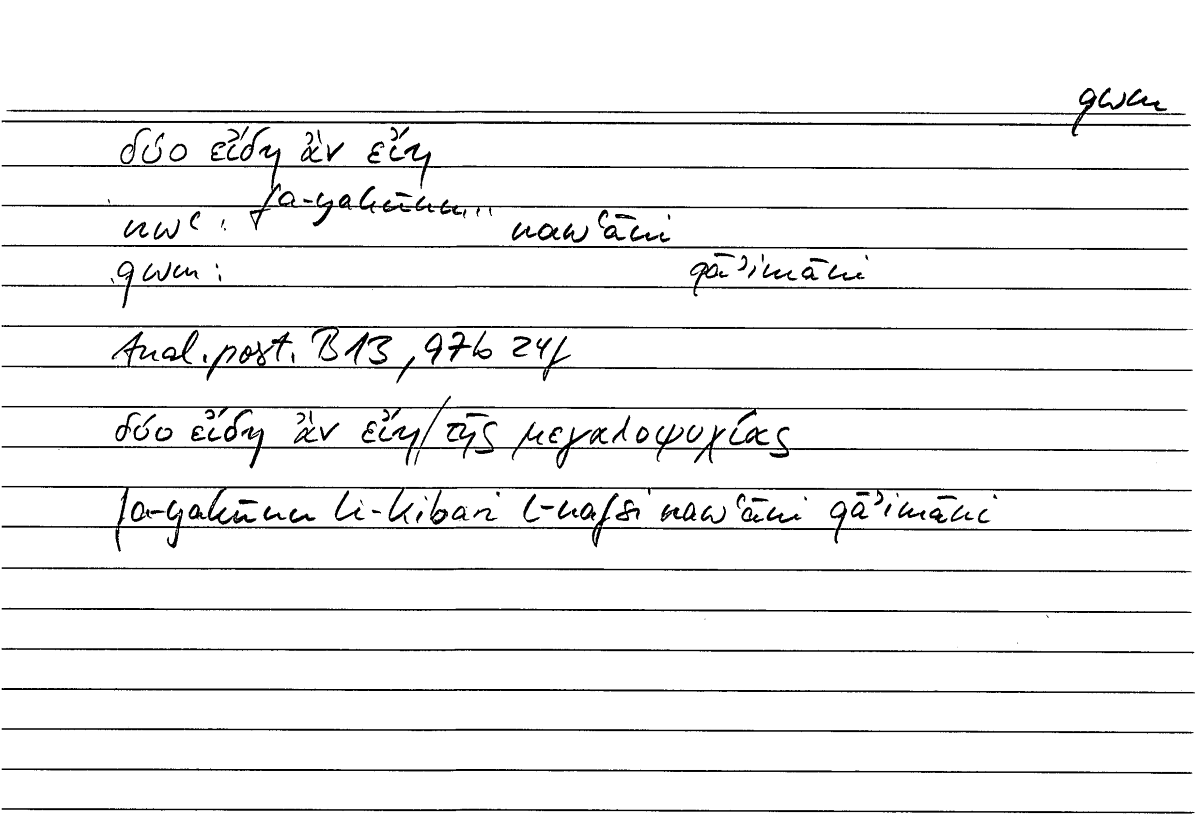 qwm
δύο εἴδη ἂν εἴη
nwʿ: fa-yakūnu... nawʿāni
qwm: qāʾimāni
Anal. post. B13, 97b 24f
δύο εἴδη ἂν εἴη/τῆς μεγαλοψυχίας
fa-yakūnu li-kibari l-nafsi nawʿāni qāʾimāni